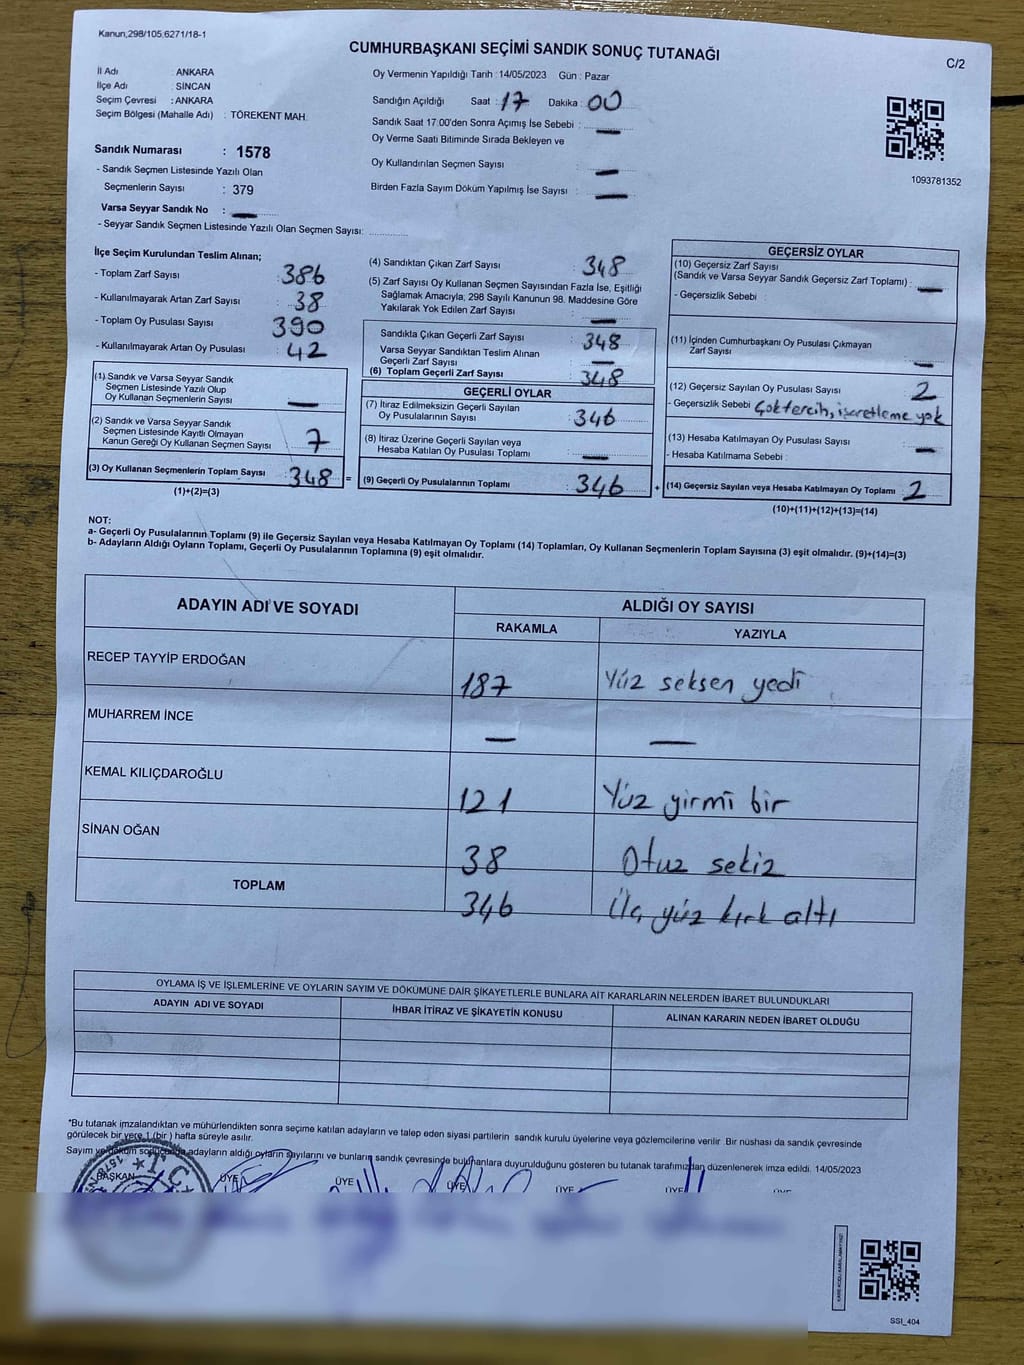 Kanun,298/105,6271/18-1
CUMHURBAŞKANI SEÇİMİ SANDIK SONUÇ TUTANAĞI
C/2
İl Adı : ANKARA
İlçe Adı : SİNCAN
Seçim Çevresi : ANKARA
Seçim Bölgesi (Mahalle Adı) : TÖREKENT MAH.
Sandık Numarası : 1578
- Sandık Seçmen Listesinde Yazılı Olan
Seçmenlerin Sayısı : 379
Varsa Seyyar Sandık No :
- Seyyar Sandık Seçmen Listesinde Yazılı Olan Seçmen Sayısı:
Oy Vermenin Yapıldığı Tarih : 14/05/2023 Gün : Pazar
Sandığın Açıldığı Saat : 17 Dakika : 00
Sandık Saat 17.00'den Sonra Açımış İse Sebebi : —
Oy Verme Saati Bitiminde Sırada Bekleyen ve
Oy Kullandırılan Seçmen Sayısı —
Birden Fazla Sayım Döküm Yapılmış İse Sayısı : —
1093781352
İlçe Seçim Kurulundan Teslim Alınan;
- Toplam Zarf Sayısı : 386
- Kullanılmayarak Artan Zarf Sayısı : 38
- Toplam Oy Pusulası Sayısı : 390
- Kullanılmayarak Artan Oy Pusulası : 42
(1) Sandık ve Varsa Seyyar Sandık
Seçmen Listesinde Yazılı Olup
Oy Kullanan Seçmenlerin Sayısı —
(2) Sandık ve Varsa Seyyar Sandık
Seçmen Listesinde Kayıtlı Olmayan
Kanun Gereği Oy Kullanan Seçmen Sayısı : 7
(3) Oy Kullanan Seçmenlerin Toplam Sayısı : 348 =
(1)+(2)=(3)
(4) Sandıktan Çıkan Zarf Sayısı : 348
(5) Zarf Sayısı Oy Kullanan Seçmen Sayısından Fazla İse, Eşitliği
Sağlamak Amacıyla, 298 Sayılı Kanunun 98. Maddesine Göre
Yakılarak Yok Edilen Zarf Sayısı : —
Sandıkta Çıkan Geçerli Zarf Sayısı : 348
Varsa Seyyar Sandıktan Teslim Alınan
Geçerli Zarf Sayısı —
(6) Toplam Geçerli Zarf Sayısı : 348
GEÇERLİ OYLAR
(7) İtiraz Edilmeksizin Geçerli Sayılan
Oy Pusulalarının Sayısı : 346
(8) İtiraz Üzerine Geçerli Sayılan veya
Hesaba Katılan Oy Pusulası Toplamı : —
(9) Geçerli Oy Pusulalarının Toplamı : 346 +
GEÇERSİZ OYLAR
(10) Geçersiz Zarf Sayısı
(Sandık ve Varsa Seyyar Sandık Geçersiz Zarf Toplamı) : —
- Geçersizlik Sebebi :
(11) İçinden Cumhurbaşkanı Oy Pusulası Çıkmayan
Zarf Sayısı —
(12) Geçersiz Sayılan Oy Pusulası Sayısı 2
- Geçersizlik Sebebi Çok tercih, işaretleme yok
(13) Hesaba Katılmayan Oy Pusulası Sayısı —
- Hesaba Katılmama Sebebi :
(14) Geçersiz Sayılan veya Hesaba Katılmayan Oy Toplamı 2
(10)+(11)+(12)+(13)=(14)
NOT:
a- Geçerli Oy Pusulalarının Toplamı (9) ile Geçersiz Sayılan veya Hesaba Katılmayan Oy Toplamı (14) Toplamları, Oy Kullanan Seçmenlerin Toplam Sayısına (3) eşit olmalıdır. (9)+(14)=(3)
b- Adayların Aldığı Oyların Toplamı, Geçerli Oy Pusulalarının Toplamına (9) eşit olmalıdır.
ADAYIN ADI VE SOYADI
ALDIĞI OY SAYISI
RAKAMLA YAZIYLA
RECEP TAYYİP ERDOĞAN 187 Yüz seksen yedi
MUHARREM İNCE — —
KEMAL KILIÇDAROĞLU 121 Yüz yirmi bir
SİNAN OĞAN 38 Otuz sekiz
TOPLAM 346 Üç yüz kırk altı
OYLAMA İŞ VE İŞLEMLERİNE VE OYLARIN SAYIM VE DÖKÜMÜNE DAİR ŞİKAYETLERLE BUNLARA AİT KARARLARIN NELERDEN İBARET BULUNDUKLARI
ADAYIN ADI VE SOYADI İHBAR İTİRAZ VE ŞİKAYETİN KONUSU ALINAN KARARIN NEDEN İBARET OLDUĞU
*Bu tutanak imzalandıktan ve mühürlendikten sonra seçime katılan adayların ve talep eden siyasi partilerin sandık kurulu üyelerine veya gözlemcilerine verilir. Bir nüshası da sandık çevresinde
görülecek bir yere 1 (bir) hafta süreyle asılır.
Sayım ve döküm sonucunda adayların aldığı oyların sayılarını ve bunların sandık çevresinde bulunanlara duyurulduğunu gösteren bu tutanak tarafımızdan düzenlenerek imza edildi. 14/05/2023
BAŞKAN ÜYE ÜYE ÜYE ÜYE ÜYE ÜYE
T.C.
1578
SSI_404